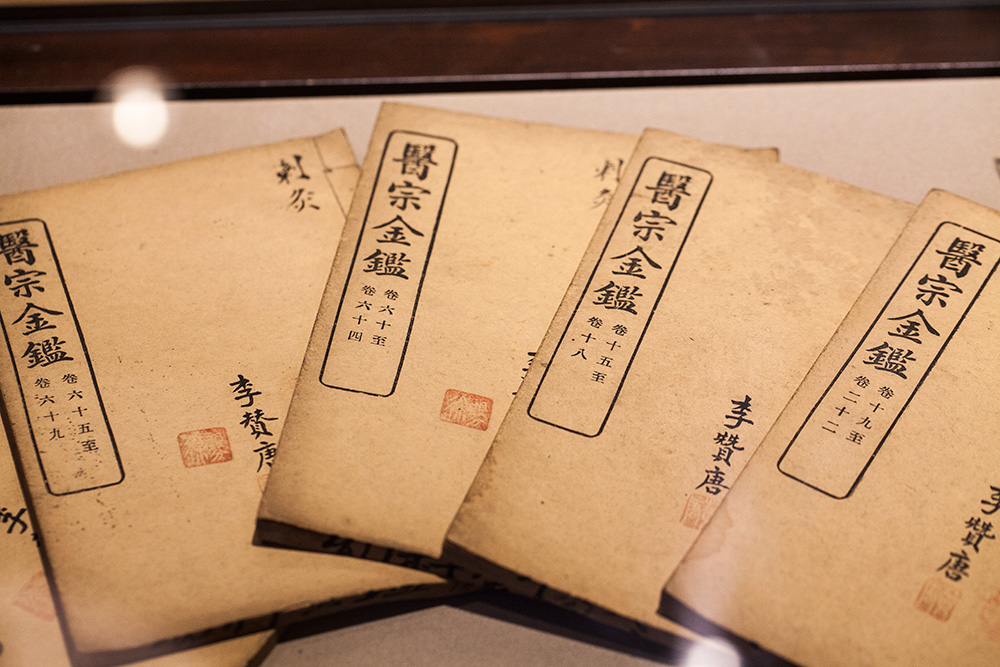 醫宗金鑑
卷六十五至
卷六十九
刺灸
李贊唐
醫宗金鑑
卷六十至
卷六十四
刺灸
醫宗金鑑
卷十五至
卷十八
李贊唐
醫宗金鑑
卷十九至
卷二十二
李贊唐
李